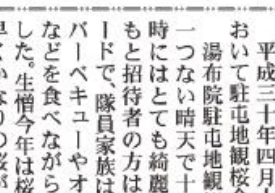 平成三十年四月
おいて駐屯地観桜会
湯布院駐屯地観
一つない晴天で十
時にはとても綺麗
もと招待者の方は
ードで、隊員家族は
バーベキューやオ
などを食べながら
した。生憎今年は桜
早くかなりの桜が